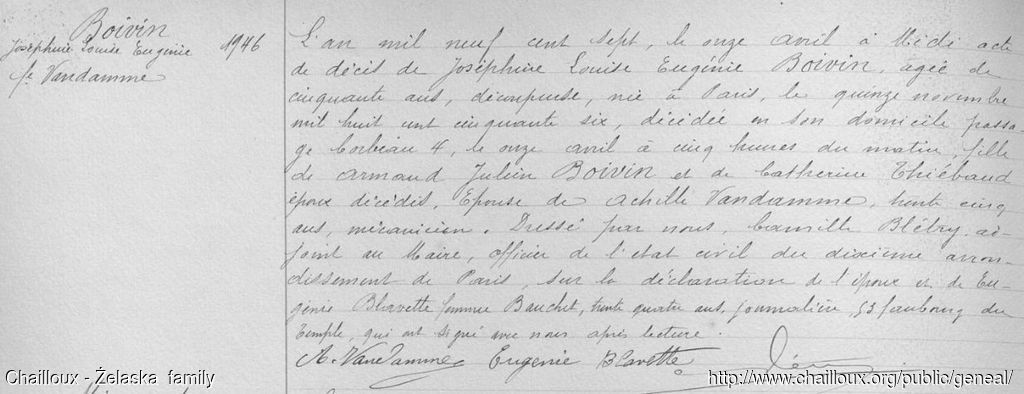 Boivin
Joséphine Louise Eugénie
fe Vandamme
1946
L'an mil neuf cent sept, le onze avril à Midi acte
de décès de Joséphine Louise Eugénie Boivin, agée de
cinquante ans, découpeuse, née à Paris, le quinze novembre
mil huit cent cinquante six, décédée en son domicile passa-
ge Corbeau 4, le onze avril à cinq heures du matin, fille
de Armand Julien Boivin et de Catherine Thiébaud
époux décédés. Epouse de Achille Vandamme, trente cinq
ans, mécanicien. Dressé par nous, Camille Blétry, ad-
joint au Maire, officier de l'état civil du dixième arron-
dissement de Paris, sur la déclaration de l'époux et de Eu-
génie Blavette femme Bauchet, trente quatre ans, journalière, 53 faubourg du
Temple, qui ont signé avec nous après lecture.
A. Vandamme Eugenie Blavette
Chailloux - Żelaska family
http://www.chailloux.org/public/geneal/